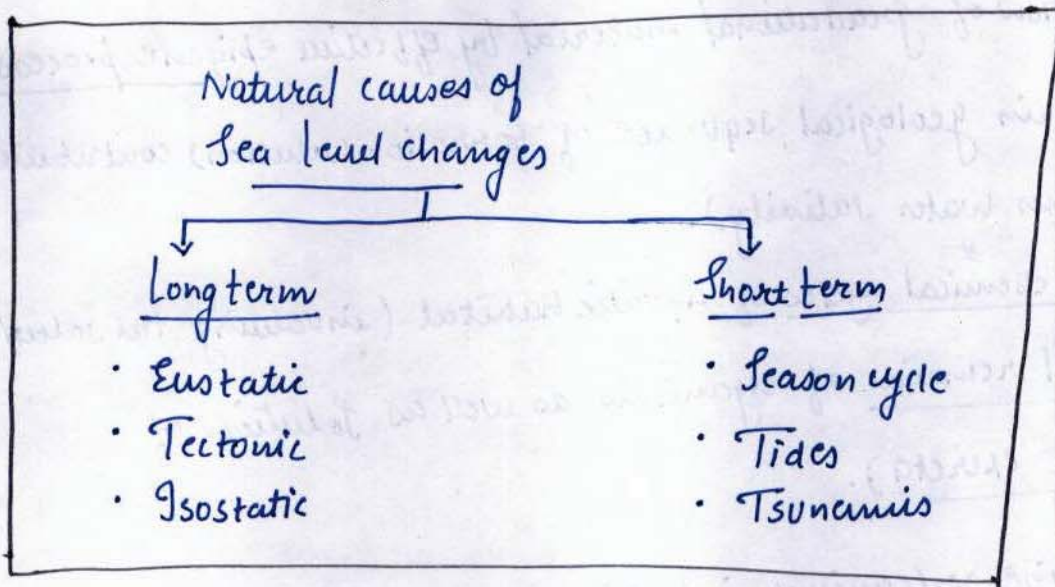 Natural causes of
Sea level changes
Long term
· Eustatic
· Tectonic
· Isostatic
Short term
· Season cycle
· Tides
· Tsunamis